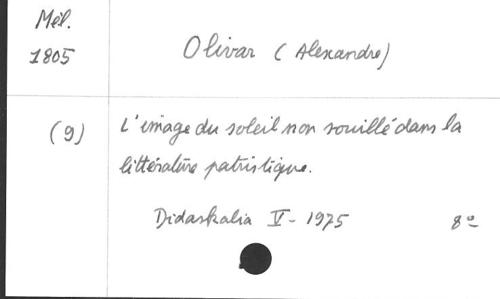 Mél.
1805
Olivar (Alexandre)
(9)
L'image du soleil non souillé dans la
littérature patristique.
Didaskalia V - 1975
8º